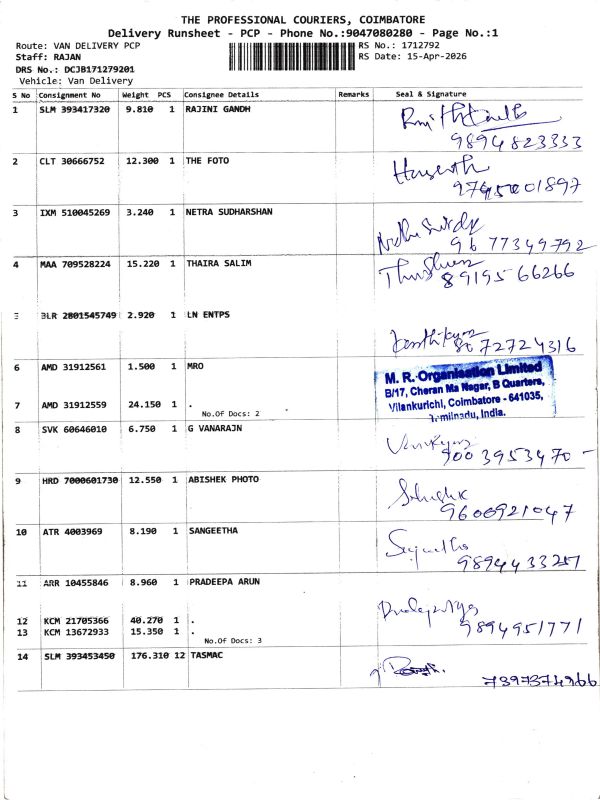 THE PROFESSIONAL COURIERS, COIMBATORE
Delivery Runsheet - PCP - Phone No.:9047080280 - Page No.:1
Route: VAN DELIVERY PCP RS No.: 1712792
Staff: RAJAN RS Date: 15-Apr-2026
DRS No.: DCJB171279201
Vehicle: Van Delivery
S No Consignment No Weight PCS Consignee Details Remarks Seal & Signature
1 SLM 393417320 9.810 1 RAJINI GANDH
9894823333
2 CLT 30666752 12.300 1 THE FOTO
3 IXM 510045269 3.240 1 NETRA SUDHARSHAN
96 77349792
4 MAA 709528224 15.220 1 THAIRA SALIM
89195 66266
5 BLR 2801545749 2.920 1 LN ENTPS
80 72724316
6 AMD 31912561 1.500 1 MRO
M. R. Organisation Limited
B/17, Cheran Ma Nagar, B Quarters,
Vilankurichi, Coimbatore - 641035,
Tamilnadu, India.
7 AMD 31912559 24.150 1 .
No.Of Docs: 2
8 SVK 60646010 6.750 1 G VANARAJN
9003953470
9 HRD 7000601730 12.550 1 ABISHEK PHOTO
9600921047
10 ATR 4003969 8.190 1 SANGEETHA
11 ARR 10455846 8.960 1 PRADEEPA ARUN
9894951771
12 KCM 21705366 40.270 1 .
13 KCM 13672933 15.350 1 .
No.Of Docs: 3
14 SLM 393453450 176.310 12 TASMAC
7397374966